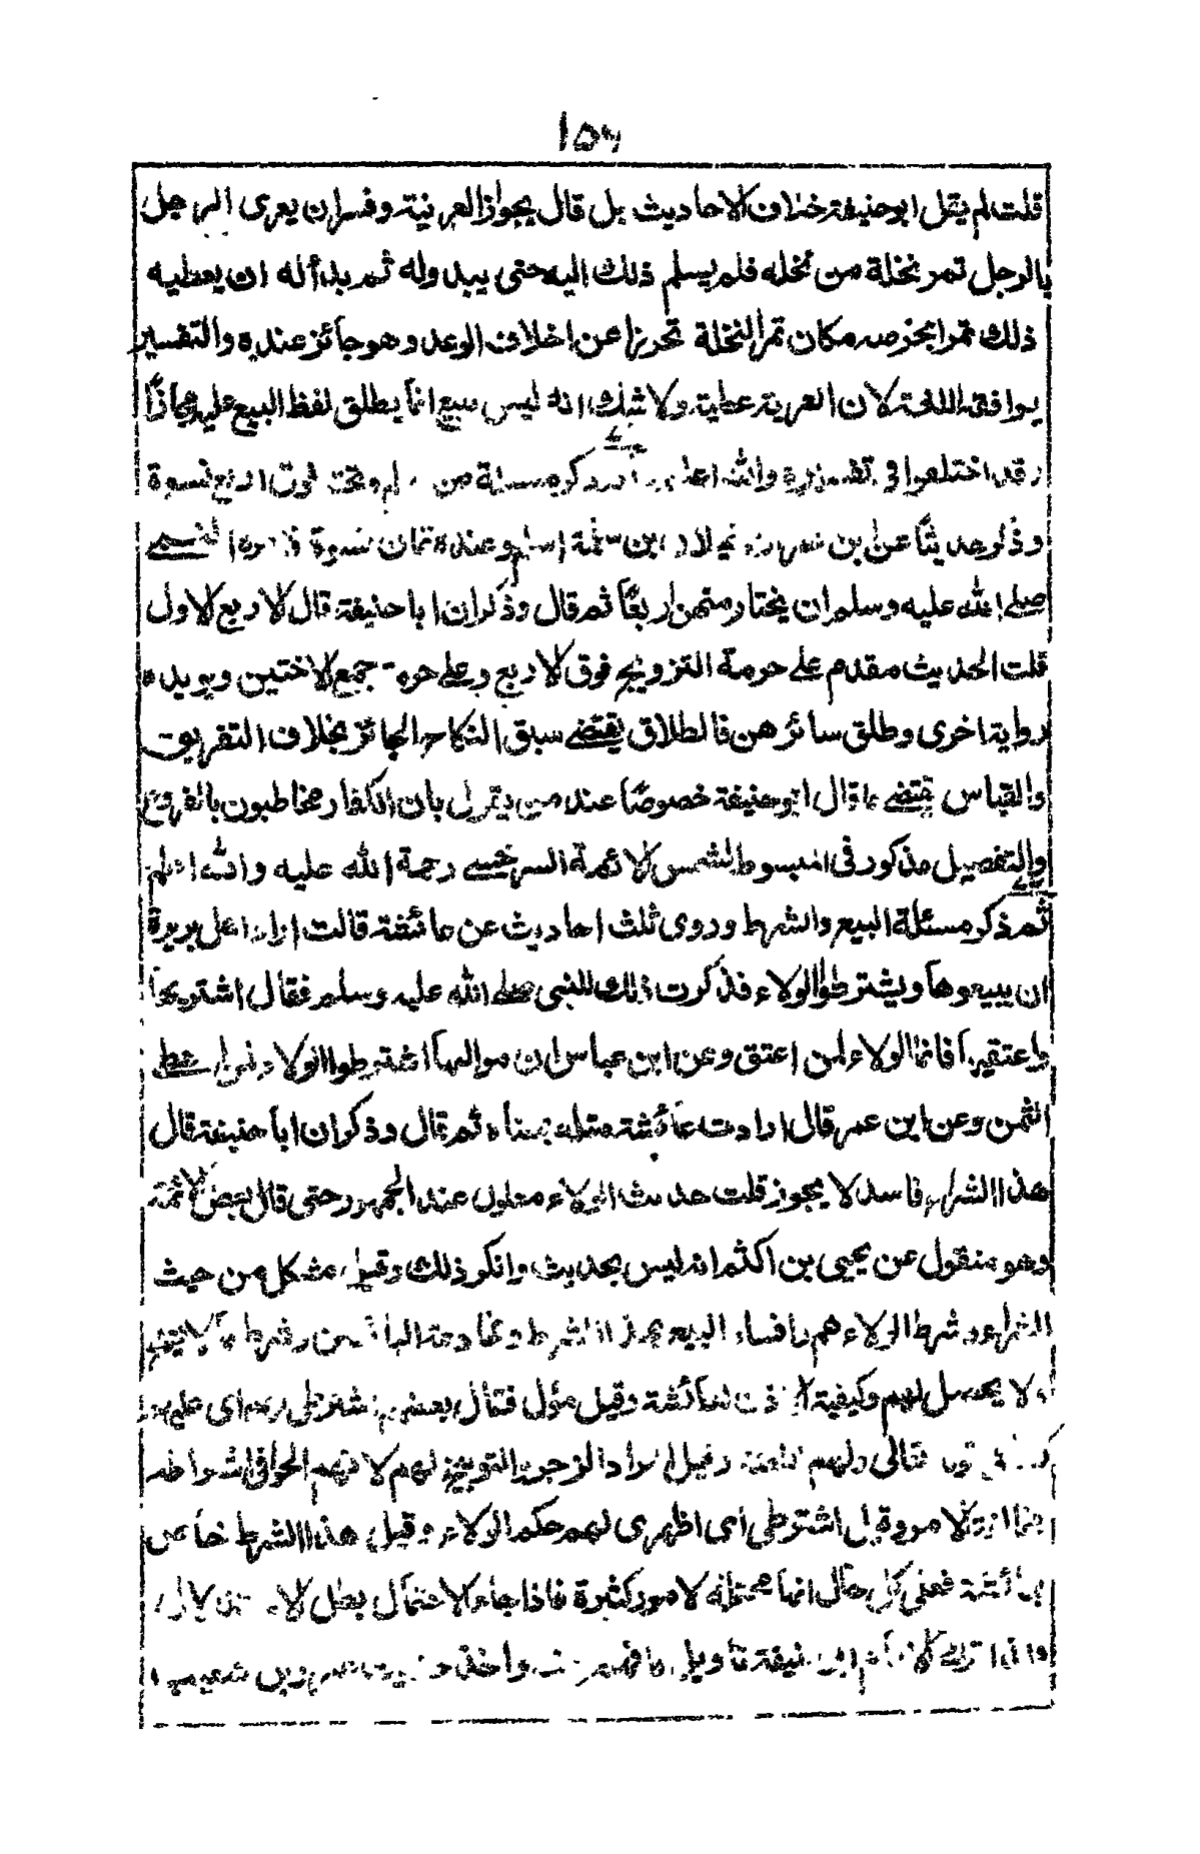 ١٥٦
قلت لم يقل ابو حنيفة خلاف الاحاديث بل قال يجواز العرية وفسران يعرى الرجل
بالرجل تمر نخلة من نخله فلم يسلم ذلك اليه حتى يبد وله ثم بدأله ان يعطيه
ذلك تمرا بخرصه مكان تمر النخلة تحريزا عن اخلاف الوعد وهو جائز عنده والتفسير
يوافق اللغة لان العرية عطية ولا شك انه ليس ببيع انما يطلق لفظ البيع عليه مجازا
وقد اختلفوا فى تفسيره والله اعلم ذكر مسئلة من اسلم وتحته فوق اربع نسوة
وذكر حديثا عن ابن عمر غيلان ابن سلمة اسلم وعنده ثمان نسوة فامره النبى
صلى الله عليه وسلم ان يختار منهن اربعًا ثم قال وذكران ابا حنيفة قال الاربع الاول
قلت الحديث مقدم على حرمة التزويج فوق الاربع وعلى حرمة جمع الاختين ويويده
رواية اخرى وطلق سائرهن فالطلاق يقتضى سبق النكاح الجائز بخلاف التفريق
والقياس يقتضى ما قال ابو حنيفة خصوصًا عند من يقول بان الكفار مخاطبون بالفروع
والتفصيل مذكور فى المبسوط لشمس الائمة السرخسى رحمة الله عليه والله اعلم
ثم ذكر مسئلة البيع والشرط وروى ثلث احاديث عن عائشة قالت اراد اهل بريرة
ان يبيعوها ويشترطوا الولاء فذكرت ذلك للنبى صلى الله عليه وسلم فقال اشتريها
واعتقيها فانما الولاء لمن اعتق وعن ابن عباس ان مواليها اشترطوا الولاء اعطى
الثمن وعن ابن عمر قال ارادت عائشة مثله بمعناه ثم قال وذكران ابا حنيفة قال
هذا الشراء فاسد لا يجوز قلت حديث الولاء معلول عند الجمهور حتى قال بعض الائمة
وهو منقول عن يحيى بن اكثم انه ليس بحديث وانكر ذلك وقيل مشكل من حيث
الشراء وشرط الولاء لهم وافساد البيع بهذا الشرط ومخادعة البائعين وشرط ما لا
لا يحصل لهم وكيفية الاذن لعائشة وقيل مؤل فقال بعضهم اشترطى لهم اى عليهم
تعالى ولهم اللعنة وقيل اراد الزجر والتوبيخ لهم لانهم الحوا فى اشتراطه
الامر وقيل اشترطى اى اظهرى لهم حكم الولاء وقيل هذا الشرط خاص
بعائشة فعلى كل حال انها محتملة لامور كثيرة فاذا جاء الاحتمال بطل
واخذ شعيب